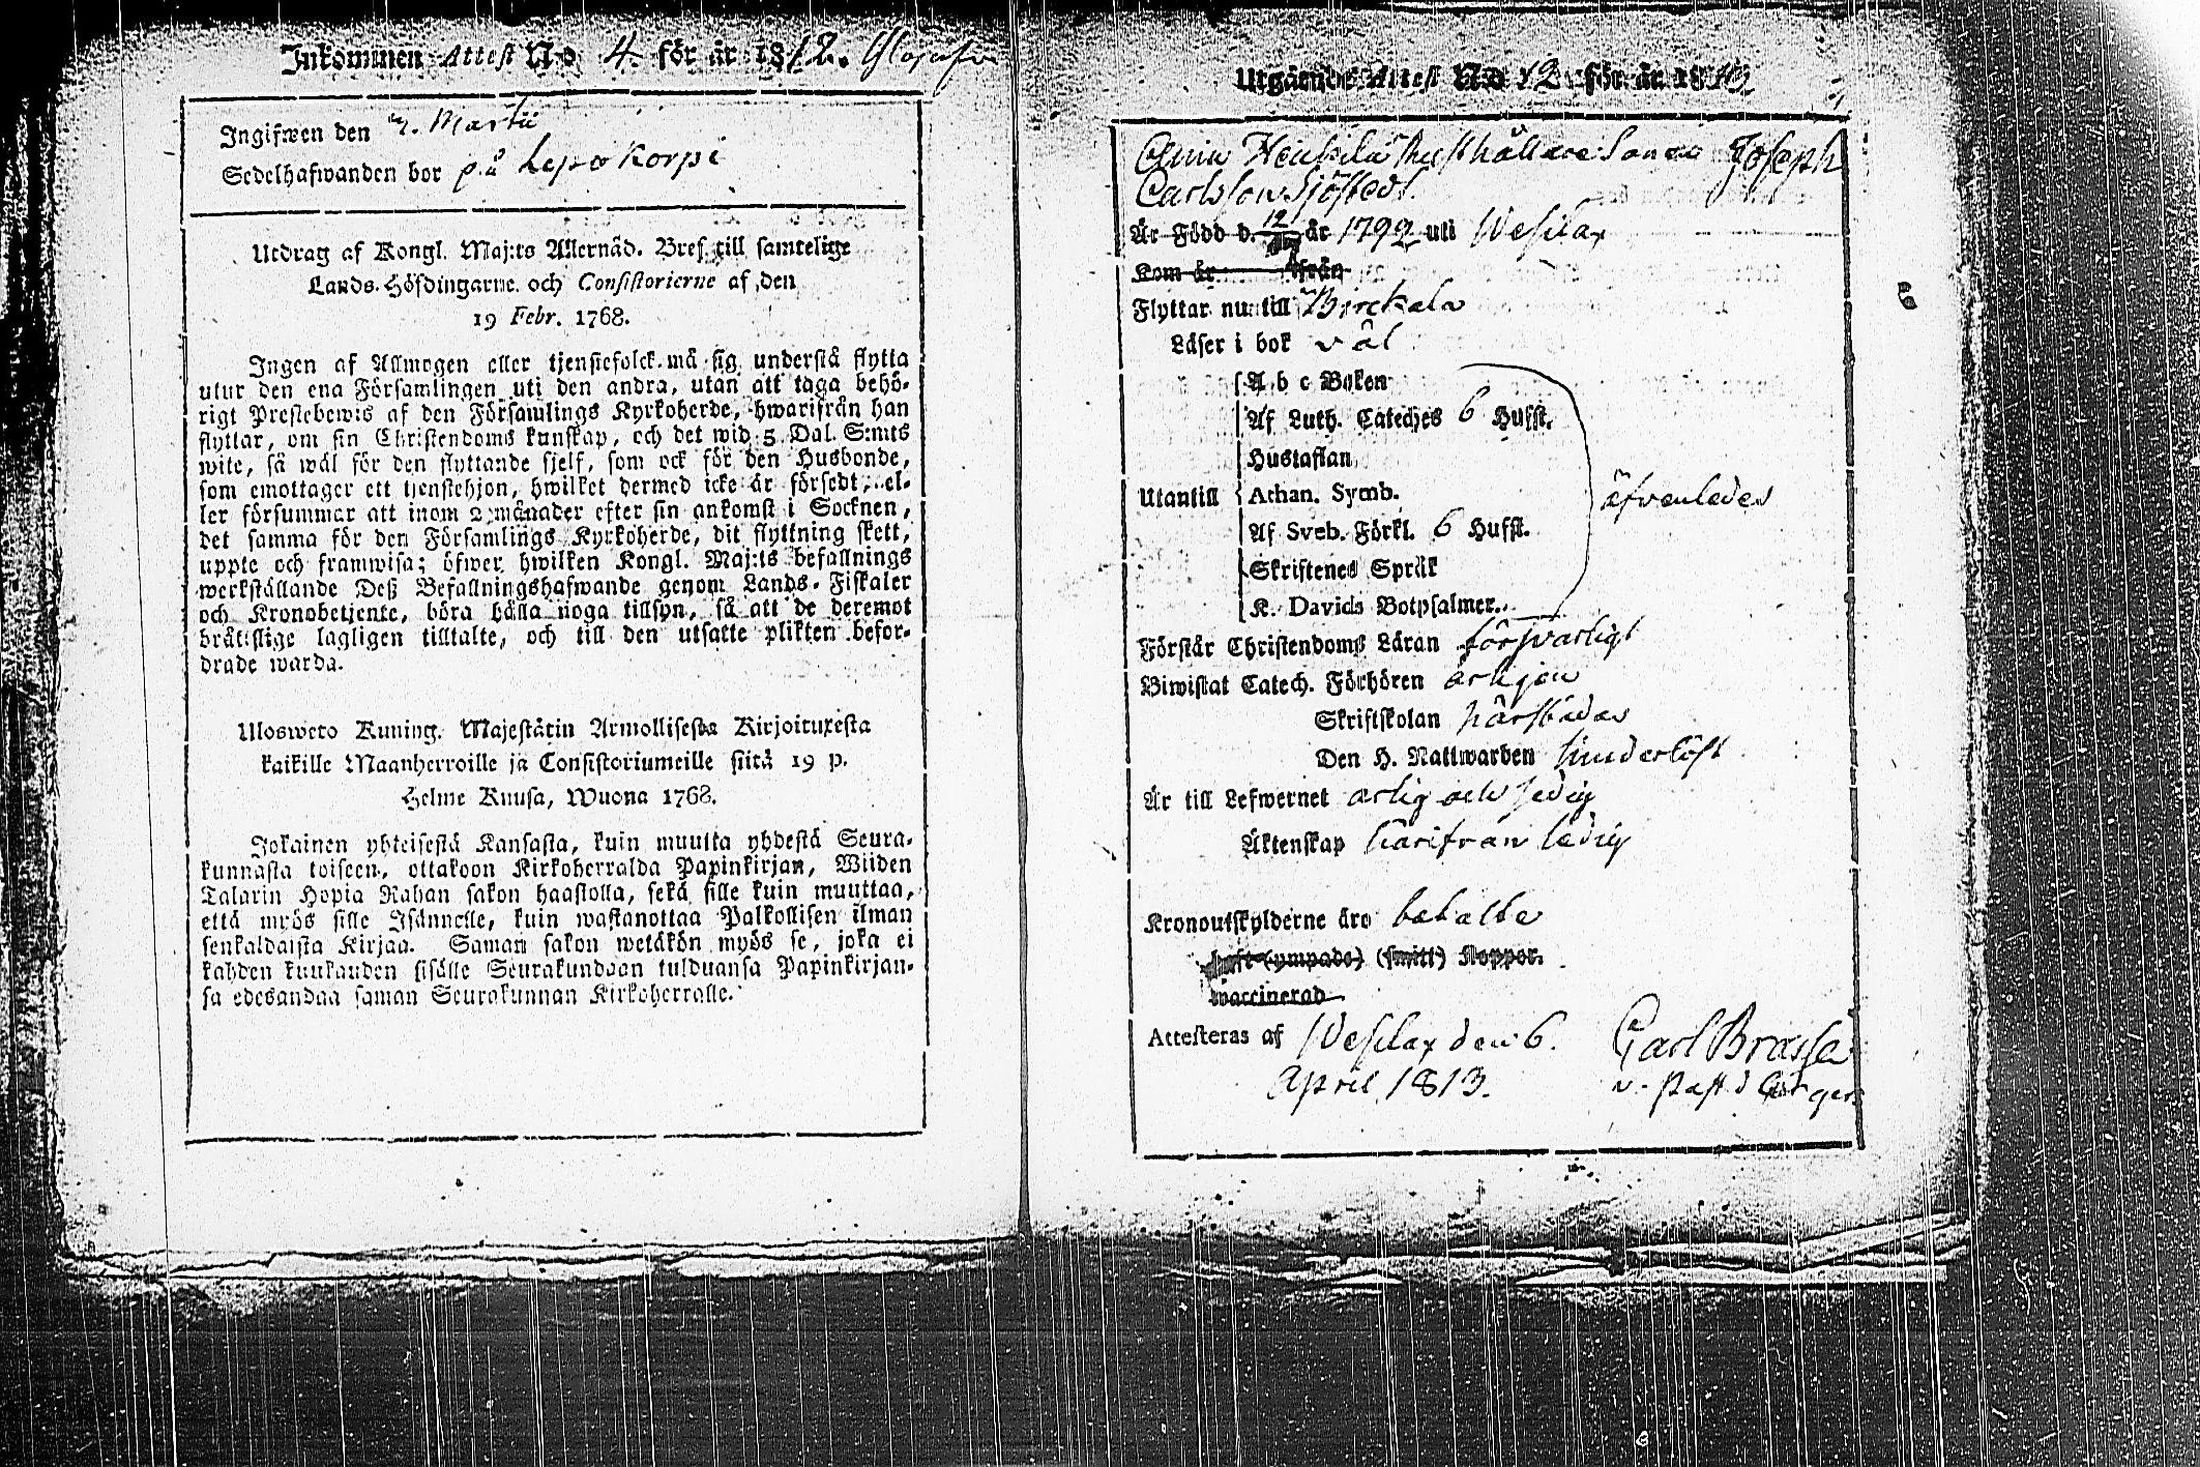 Inkommen Attest No 4. för år 1812.
Ingifwen den 7. Martii
Sedelhafwanden bor på Lepokorpi
Utdrag af Kongl. Maj:ts Allernåd. Bref till samtelige
Lands-Höfdingarne och Consistorierne af den
19 Febr. 1768.
Ingen af Allmogen eller tjenstefolck må sig understå flytta
utur den ena Församlingen uti den andra, utan att taga behö-
rigt Prestebewis af den Församlings Kyrkoherde, hwarifrån han
flyttar, om sin Christendoms kunskap, och det wid 5 Dal. S:mts
wite, så wäl för den flyttande sjelf, som ock för den Husbonde,
som emottager ett tjenstehjon, hwilket dermed icke är försedt, el-
ler försummar att inom 2 månader efter sin ankomst i Socknen,
det samma för den Församlings Kyrkoherde, dit flyttning skett,
uppte och framwisa; öfwer hwilken Kongl. Maj:ts befallnings
werkställande Deß Befallningshafwande genom Lands-Fiskaler
och Kronobetjente, böra hålla noga tillsyn, så att de deremot
bråttslige lagligen tilltalte, och till den utsatte plikten befor-
drade warda.
Ulosweto Kuning. Majestätin Armollisesta Kirjoituxesta
kaikille Maanherroille ja Consistoriumeille siitä 19 p.
Helme Kuusa, Wuona 1768.
Jokainen yhteisestä Kansasta, kuin muutta yhdestä Seura-
kunnasta toiseen, ottakoon Kirkoherralda Papinkirjan, Wiiden
Talarin Hopia Rahan sakon haastolla, sekä sille kuin muuttaa,
että myös sille Isännelle, kuin wastanottaa Palkollisen ilman
senkaldaista Kirjaa. Saman sakon wetäkön myös se, joka ei
kahden kuukauden sisälle Seurakundaan tulduansa Papinkirjan-
sa edesandaa saman Seurakunnan Kirkoherralle.
Utgående Attest No 12 för år 1813
Joseph
Carlsson Sjöstedt.
Är Född d. 12 år 1792 uti Wesilax
Kom år från
Flyttar nu till Birckala
Läser i bok väl
Utantill
A b c Boken
Af Luth. Cateches 6 Hufst.
Hustaflan
Athan. Symb.
Af Sveb. Förkl. 6 Hufst.
Skriftenes Språk
K. Davids Botpsalmer.
äfvenledes
Förstår Christendoms Läran försvarligt
Biwistat Catech. Förhören årligen
Skriftskolan härstädes
Den H. Nattwarden hinderlöst
Är till Lefwernet ärlig och sedig
Äktenskap härifrån ledig
Kronoutskylderne äro betalte
haft (ympade) (smitt) Koppor.
waccinerad
Attesteras af Wesilax den 6. Carl Brasse
April 1813.